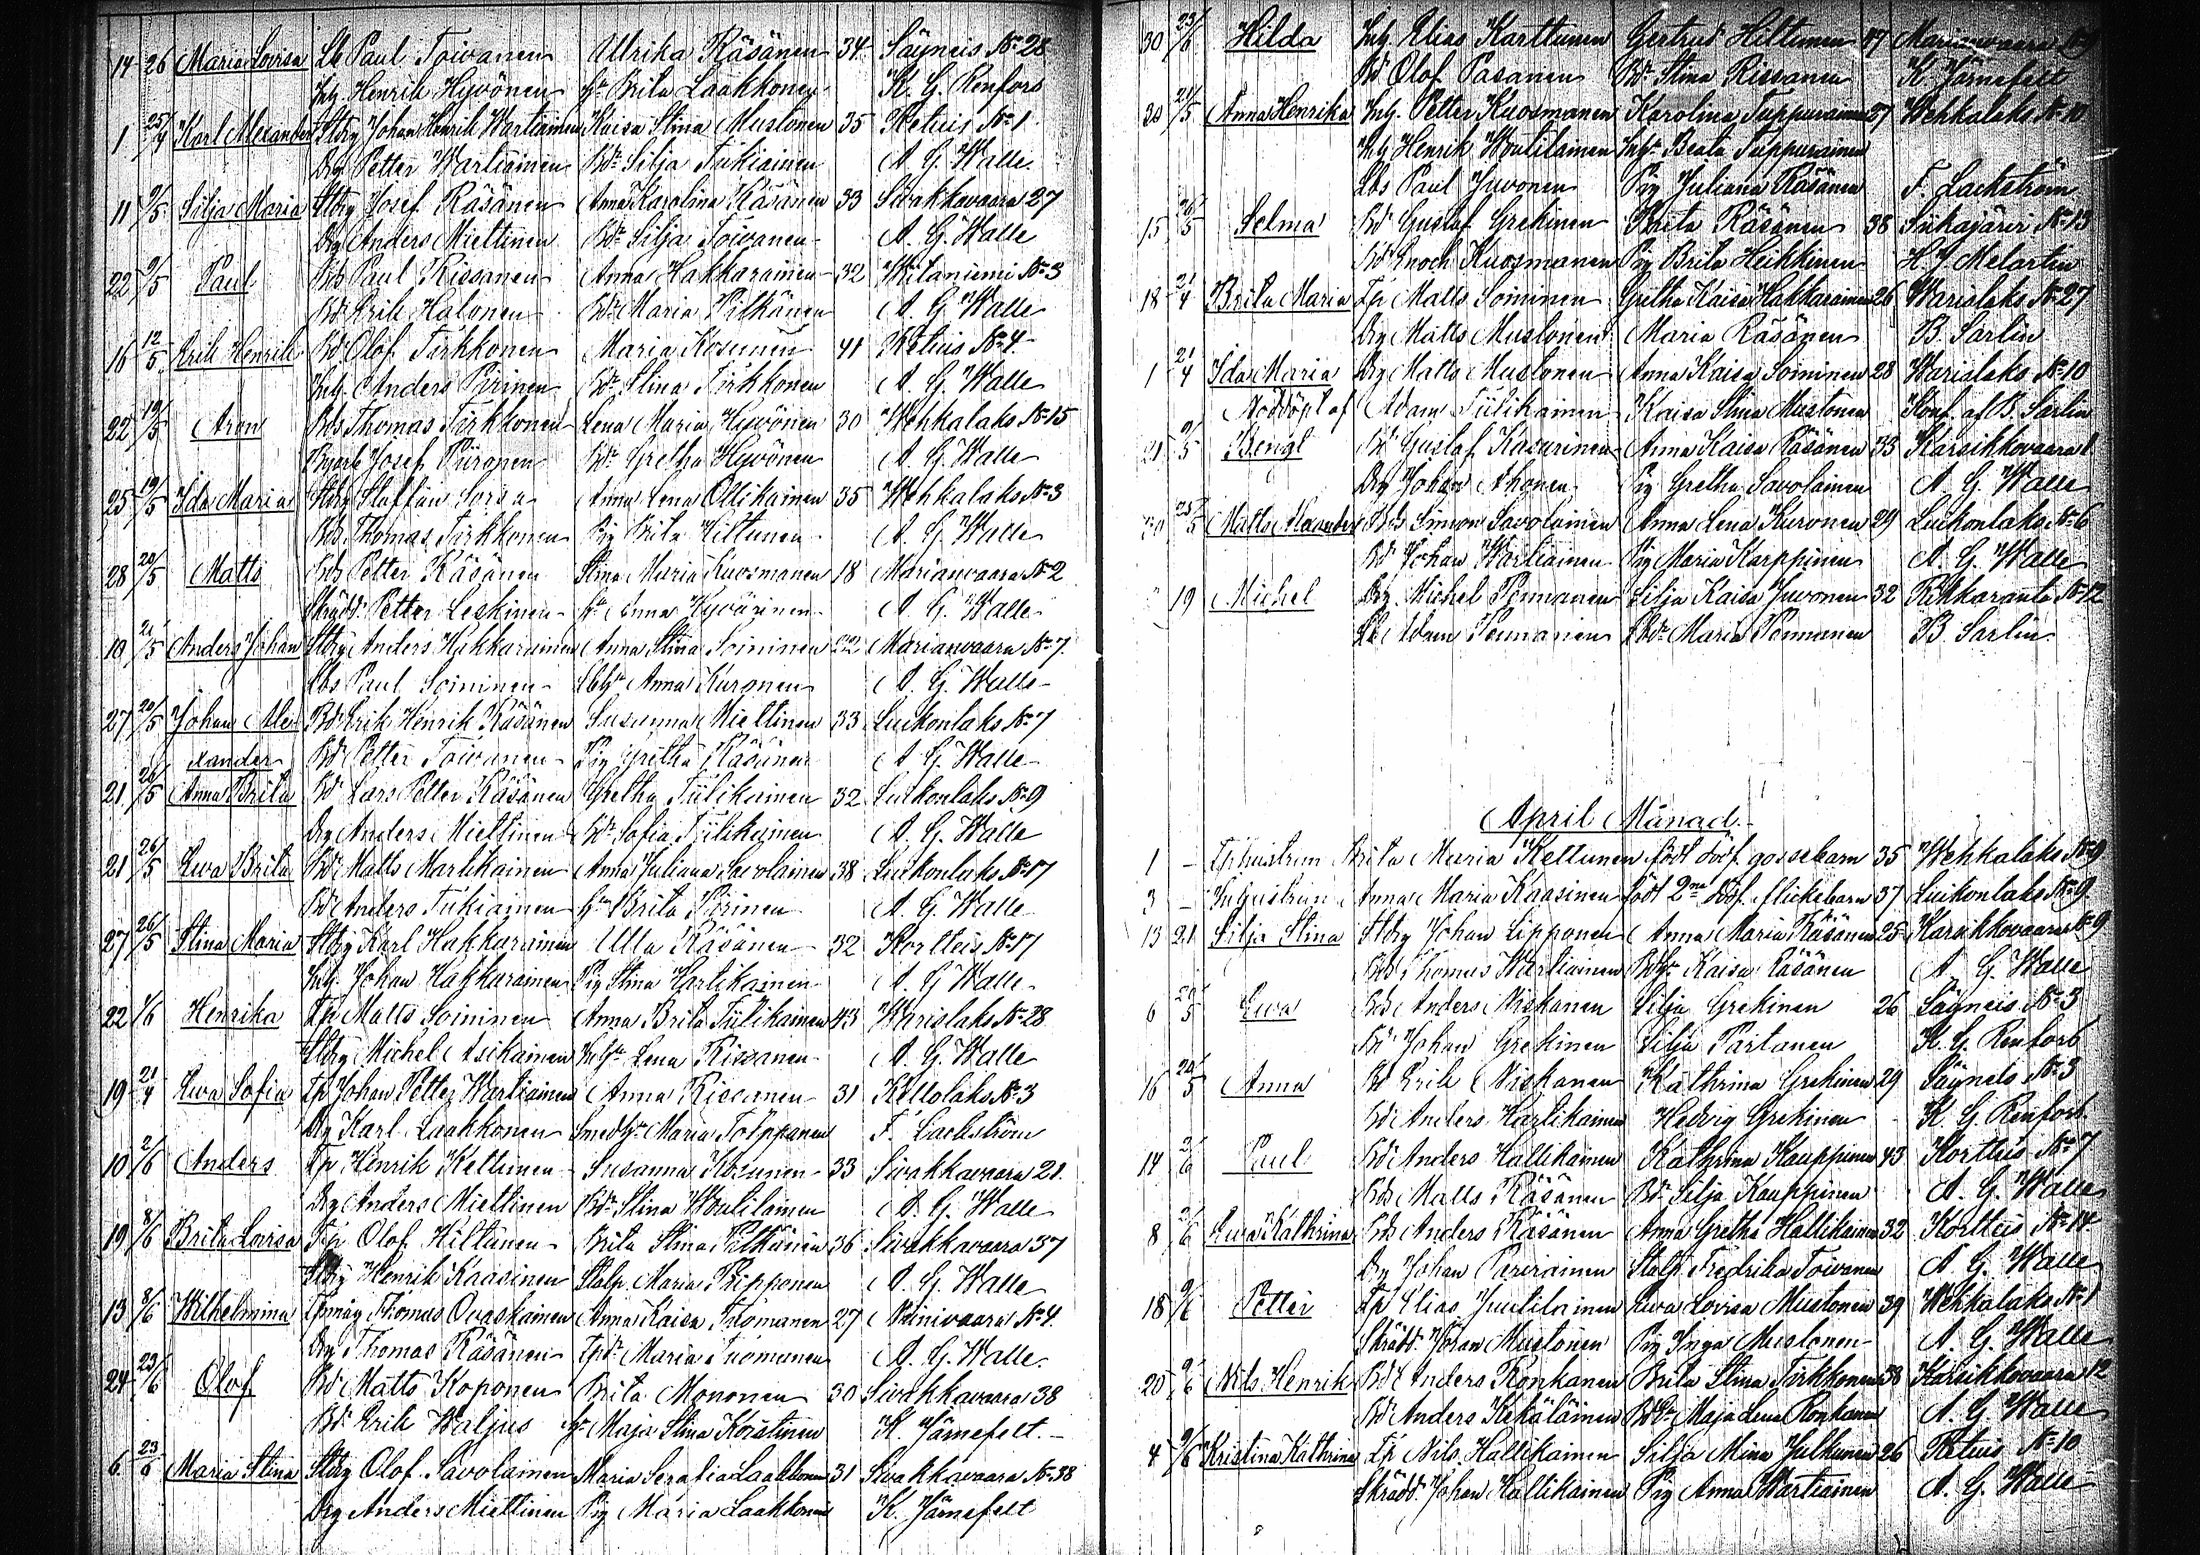 14 26 Maria Lovisa Lb Paul Toivanen Ullrika Räsänen 34 Säyneis No 28
Inh. Henrik Hyvönen Hu Brita Laakkonen K. G. Renfors
1 25/4 Karl Alexander Stbg Johan Henrik Wartiainen Kaisa Stina Mustonen 35 Petuis No 1
Drg Petter Wartiainen Bdr Silja Tukiainen A. G. Walle
11 9/5 Silja Maria Stbg Josef Räsänen Anna Karolina Räsänen 33 Sivakkavaara 27
Drg Anders Miettinen Bdr Silja Toivanen A. G. Walle
22 9/5 Paul Bds Paul Rissanen Anna Hakkarainen 32 Niinimi No 3
Bd Erik Halonen Bdr Maria Pitkänen A. G. Walle
16 12/5 Erik Henrik Bd Olof Tirkkonen Maria Kosunen 41 Petuis No 4
Inh. Anders Pirinen Bdr Stina Tirkkonen A. G. Walle
22 19/5 Aron Bds Thomas Tirkkonen Lena Maria Hyvönen 30 Wehkalaks No 15
Josef Piironen Bdr Gretha Hyvönen A. G. Walle
25 19/5 Ida Maria Stbg Staffan Sorsa Anna Lena Ollikainen 35 Wehkalaks No 3
Bds Thomas Tirkkonen Pig Brita Hiltunen A. G. Walle
28 20/5 Matts Bds Petter Räsänen Stina Maria Kuosmanen 18 Marianvaara No 2
Skrädd. Petter Leskinen Hu Anna Hyvärinen A. G. Walle
10 21/5 Anders Johan Stbg Anders Hakkarainen Anna Stina Soininen 22 Marianvaara No 7
Lbs Paul Soininen Lbhu Anna Kuronen A. G. Walle
27 20/5 Johan Ale- Bd Erik Henrik Räsänen Susanna Miettinen 33 Luikonlaks No 7
xander Bd Petter Toivanen Pig Gretha Räsänen A. G. Walle
21 26/5 Anna Brita Bd Lars Petter Räsänen Gretha Tiilikainen 32 Luikonlaks No 9
Drg Anders Miettinen Bdr Sofia Tiilikainen A. G. Walle
21 26/5 Ewa Brita Bd Matts Martikainen Anna Juliana Savolainen 38 Luikonlaks No 17
Bd Anders Tukiainen Hu Brita Pirinen A. G. Walle
27 26/5 Stina Maria Stbg Karl Hakkarainen Ulla Räsänen 32 Kortteis No 17
Inh. Johan Hakkarainen Pig Stina Hartikainen A. G. Walle
22 1/6 Henrika Tp Matts Soininen Anna Brita Tiilikainen 43 Warislaks No 28
Stbg Michel Asikainen Inhu Lena Rissanen A. G. Walle
19 21/4 Ewa Sofia Tp Johan Petter Wartiainen Anna Rissanen 31 Keltolaks No 3
Drg Karl Laakkonen Smedhu Maria Tolppanen F. Lackström
10 2/6 Anders Tp Henrik Kettunen Susanna Kosunen 33 Sivakkavaara 21
Drg Anders Miettinen Bdr Stina Woutilainen A. G. Walle
19 8/6 Brita Lovisa Tp Olof Hiltunen Brita Stina Pitkänen 36 Sivakkavaara 37
Stbg Henrik Kaasinen Stalp Maria Ripponen A. G. Walle
13 8/6 Wilhelmina Tpmåg Thomas Ovaskainen Anna Kaisa Tuomanen 27 Niinivaara No 4
Drg Thomas Räsänen Tpdr Maria Tuomanen A. G. Walle
24 23/6 Olof Bd Matts Koponen Brita Mononen 30 Sivakkavaara 38
Bd Erik Waljus Hu Maja Stina Koistinen K. Järnefelt
6 23/6 Maria Stina Stbg Olof Savolainen Maria Serafia Laakkonen 31 Sivakkavaara No 38
Drg Anders Miettinen Pig Maria Laakkonen K. Järnefelt
30 23/6 Hilda Inh Elias Karttunen Gertrud Hiltunen 47 Marianvaara
Bd Olof Pasanen Bdr Stina Rissanen K Järnefelt
20 21/5 Anna Henrika Inh. Petter Kuosmanen Karolina Tuppurainen 27 Wehkalaks No 10
Inh Henrik Woutilainen Inhr Beata Tuppurainen
Lbs Paul Juvonen Pig Juliana Räsänen F. Lackström
15 26/5 Selma Bd Gustaf Grekinen Brita Räsänen 38 Siikajärvi No 13
Bd Enoch Kuosmanen Pig Brita Heikkinen H J Melartin
18 21/4 Brita Maria Tp Matts Soininen Gretha Kaisa Hakkarainen 26 Warislaks No 27
Drg Matts Mustonen Maria Räsänen B. Sarlin
1 21/4 Ida Maria Drg Matts Mustonen Anna Kaisa Soininen 28 Warislaks No 10
Nöddöpt af Adam Tiilikainen Kaisa Stina Mustonen Konf. af B. Sarlin
21 9/5 Bengt Bd Gustaf Kasurinen Anna Kaisa Räsänen 33 Karsikkovaara 1
Drg Johan Ahonen Pig Gretha Savolainen A. G. Walle
30 25/5 Matts Alexander Bds Simon Savolainen Anna Lena Kuronen 29 Luikonlaks No 6
Bd Johan Wartiainen Pig Maria Karppinen A. G. Walle
19 Michel Drg. Michel Pennanen Silja Kaisa Juvonen 32 Rikkaranta No 12
Lb Adam Pennanen Lbdr Maria Pennanen B. Sarlin
April Månad.
1 - Tphustrun Brita Maria Kettunen födt dödf. gossebarn 35 Wehkalaks No 9
3 - Inhustrun Anna Maria Kaasinen födt 2ne dödf. flickebarn 37 Luikonlaks No 9
13 21 Silja Stina Stbg Johan Lipponen Anna Maria Räsänen 25 Karsikkovaara No 9
Bds Thomas Wartiainen Bdhu Kaisa Räsänen A. G. Walle
6 20/5 Ewa Bds Anders Niskanen Silja Grekinen 26 Säyneis No 3
Bd Johan Grekinen Silja Partanen K. G. Renfors
16 20/5 Anna Bd Erik Niskanen Kathrina Grekinen 29 Säyneis No 3
Bd Anders Hartikainen Hedvig Grekinen K. G. Renfors
14 2/6 Paul Bd Anders Hallikainen Kathrina Kauppinen 43 Kortteis No 7
Bds Matts Räsänen Bdr Silja Kauppinen A. G. Walle
8 2/6 Ewa Kathrina Bds Anders Räsänen Anna Gretha Hallikainen 32 Kortteis No 14
Drg Johan Parviainen Stalp Fredrika Toivanen A. G. Walle
18 9/6 Petter Tp Elias Juutilainen Ewa Lovisa Mustonen 39 Wehkalaks No 1
Skrädd. Johan Mustonen Pig Inga Mustonen A. G. Walle
20 9/6 Nils Henrik Bd Anders Ronkanen Brita Stina Tirkkonen 38 Karsikkovaara 12
Bd Anders Kekäläinen Bdhu Maja Lena Ronkanen A. G. Walle
4 9/6 Kristina Kathrina Tp Nils Hallikainen Silja Mina Julkunen 26 Petuis No 10
Skrädd. Johan Hallikainen Pig Anna Wartiainen A. G. Walle